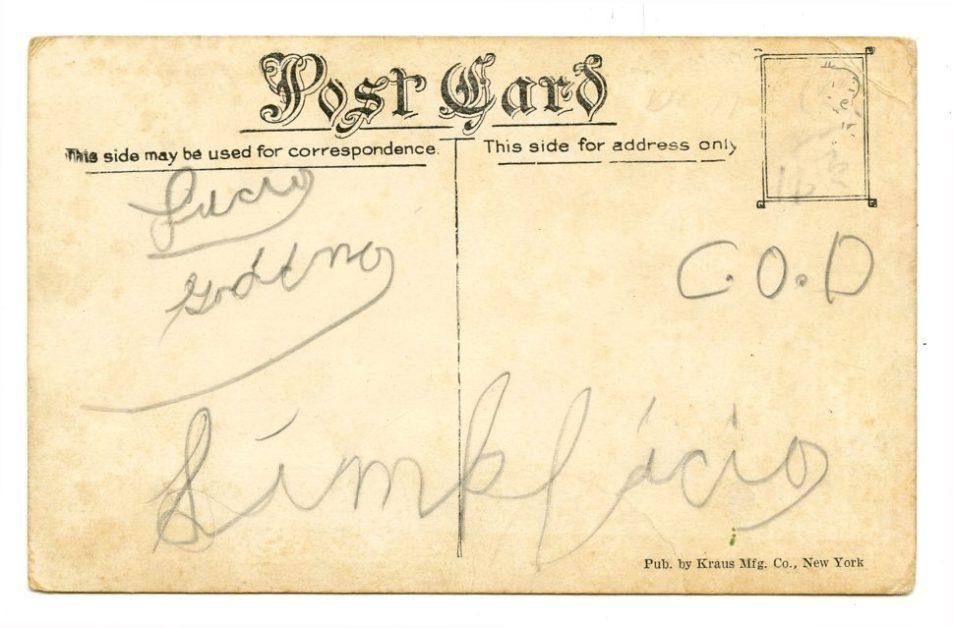 Post Card
This side may be used for correspondence.
This side for address only
Lucio
C.O.D
Simplício
Pub. by Kraus Mfg. Co., New York